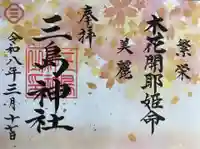 繁栄
木花開耶姫命
美麗
奉拝
三島神社
令和八年三月十